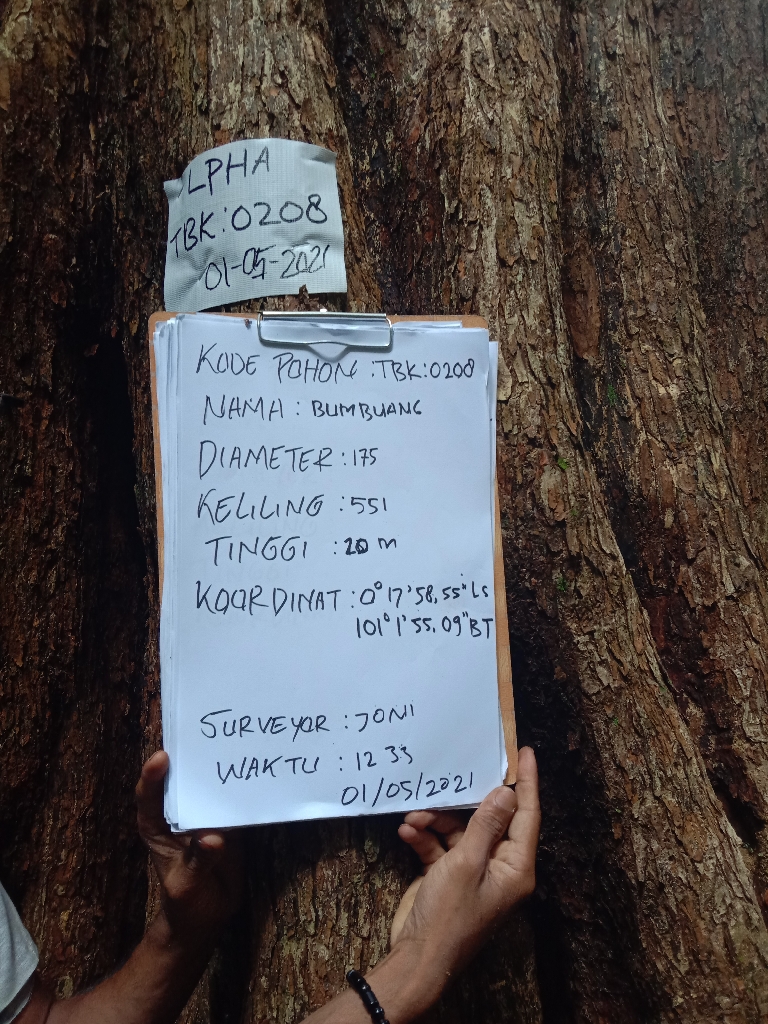 LPHA
TBK:0208
01-05-2021
KODE POHON :TBK:0208
NAMA : BUMBUANG
DIAMETER : 175
KELILING : 551
TINGGI : 20 m
KOORDINAT : 0° 17' 58,55" LS
101° 1' 55.09" BT
SURVEYOR : JONI
WAKTU : 12 33
01/05/2021